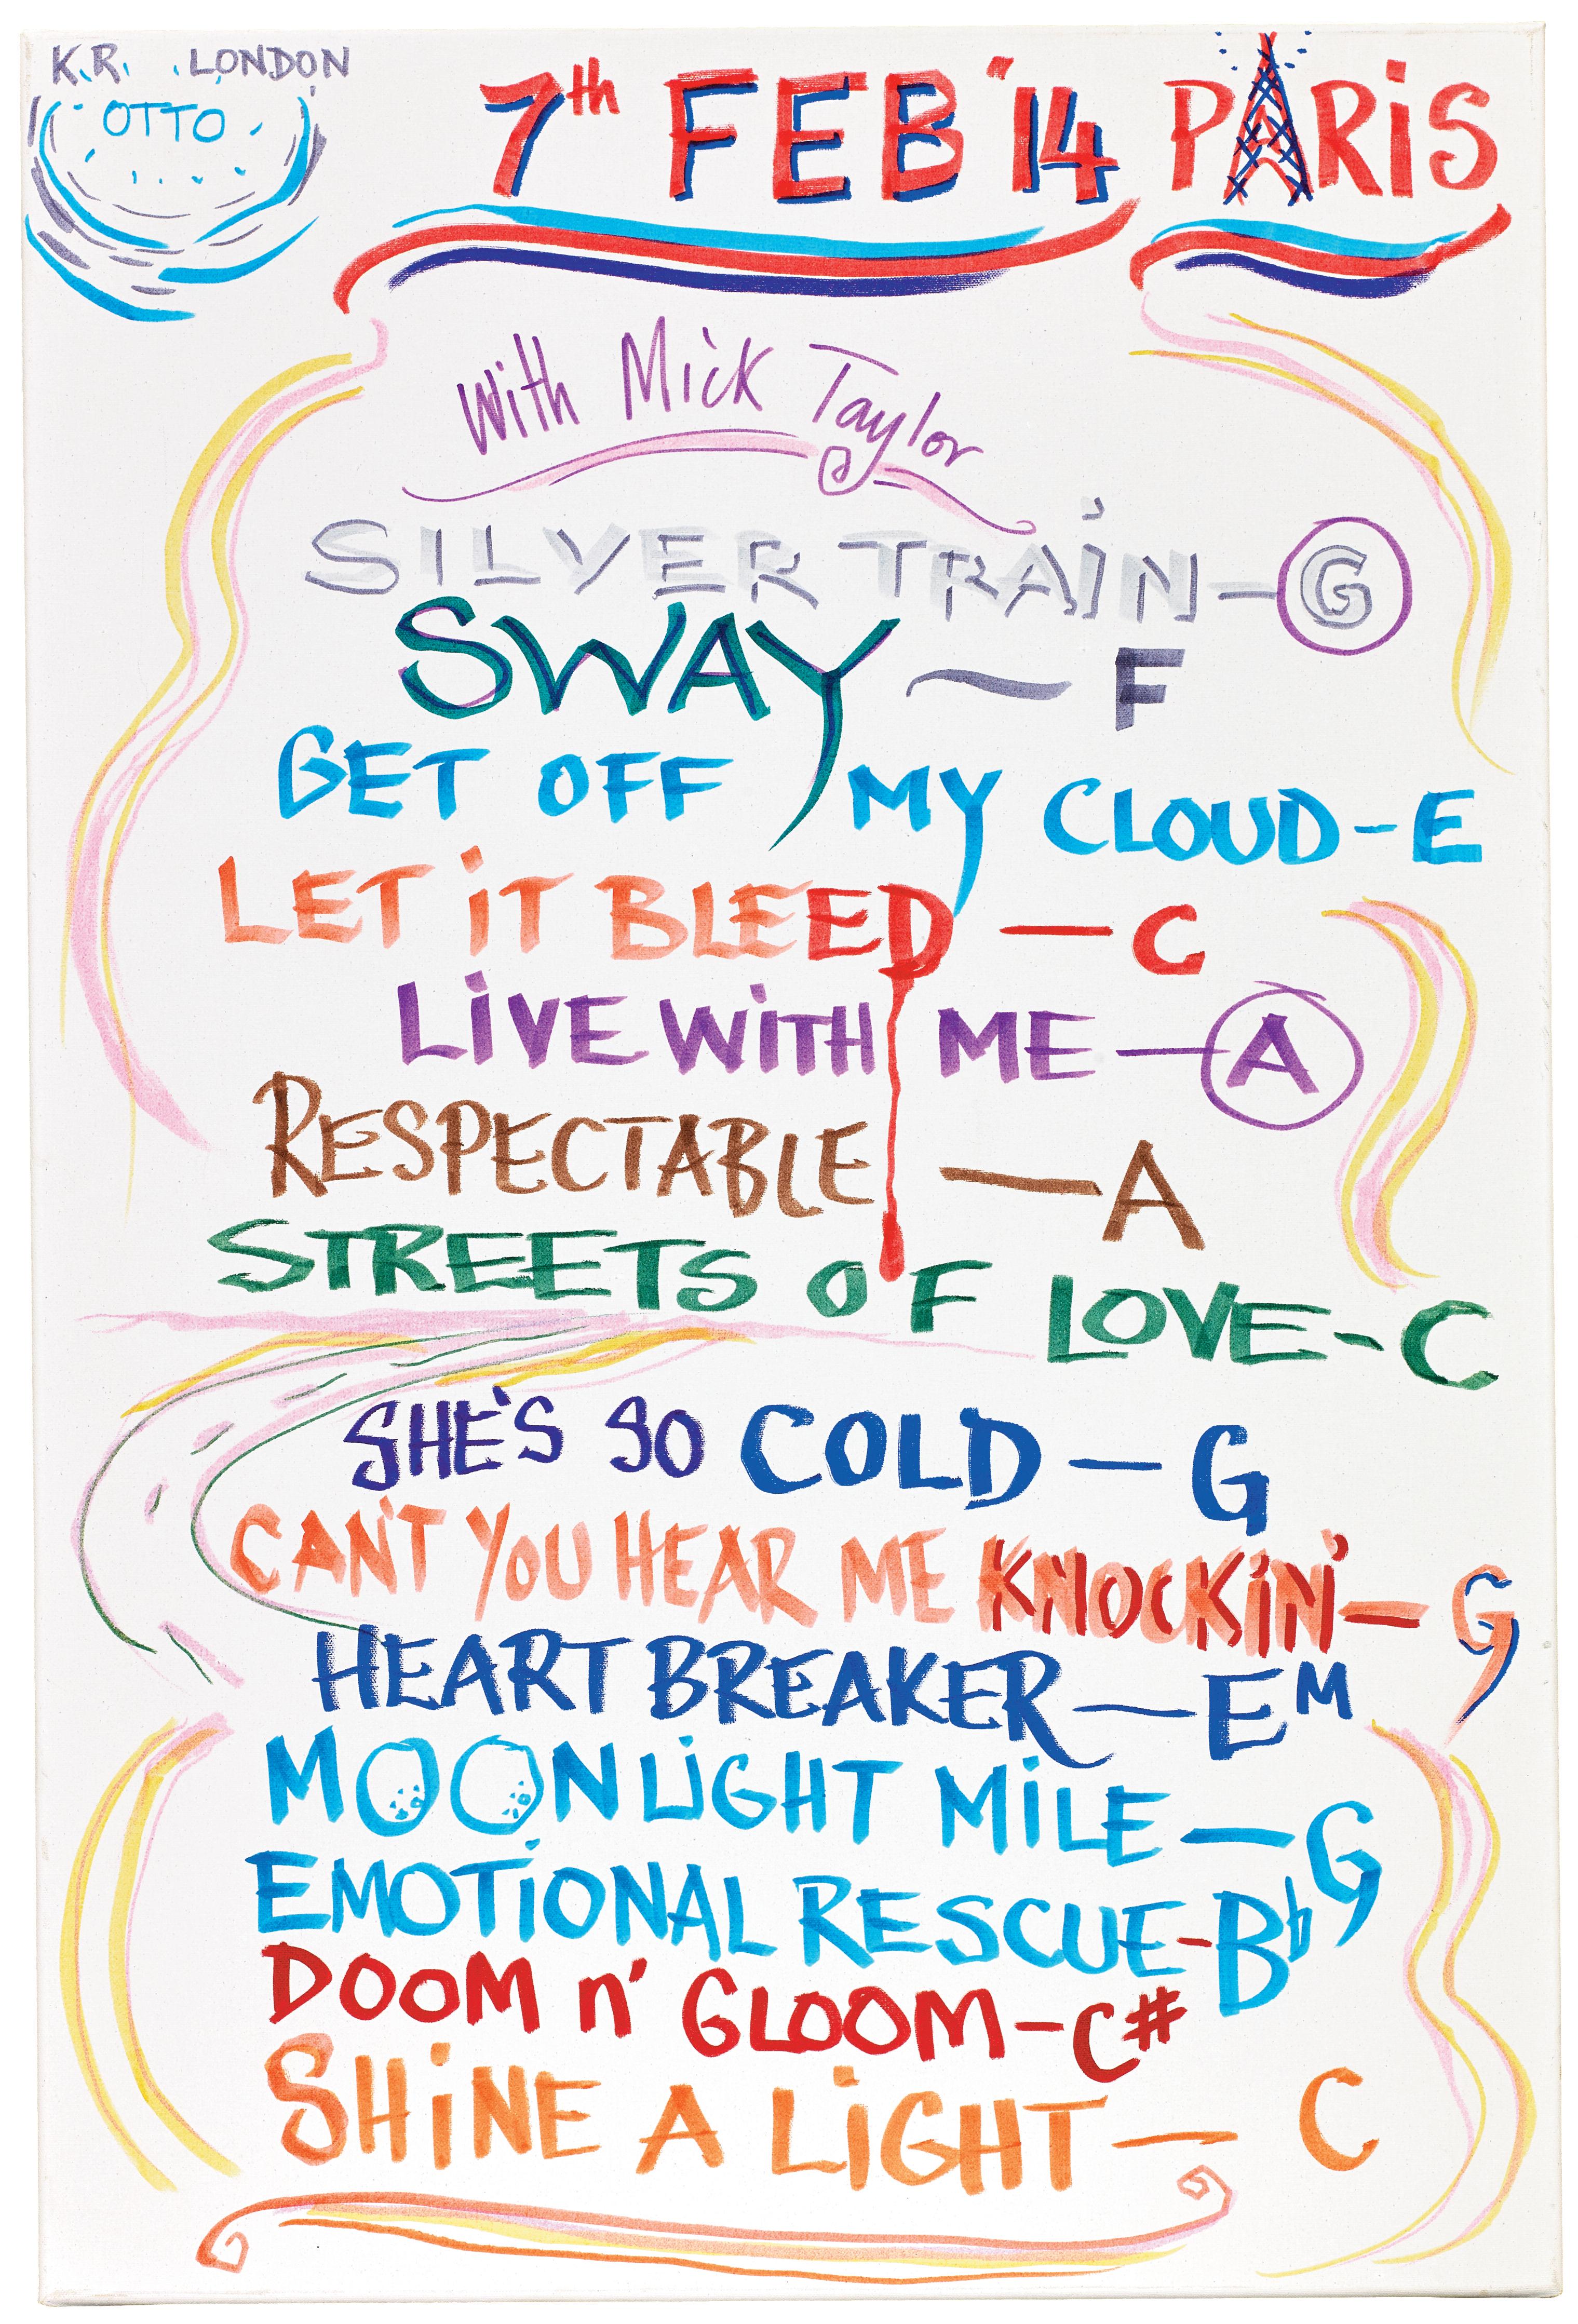 K.R. LONDON
OTTO
7th FEB '14 PARiS
With Mick Taylor
SILVER TRAiN - G
SWAY - F
GET OFF MY CLOUD - E
LET iT BLEED - C
LiVE WiTH ME - A
RESPECTABLE - A
STREETS OF LOVE - C
SHE'S SO COLD - G
CAN'T YOU HEAR ME KNOCKiN' - G
HEART BREAKER - EM
MOONLiGHT MiLE - G
EMOTiONAL RESCUE - Bb
DOOM n' GLOOM - C#
SHiNE A LiGHT - C